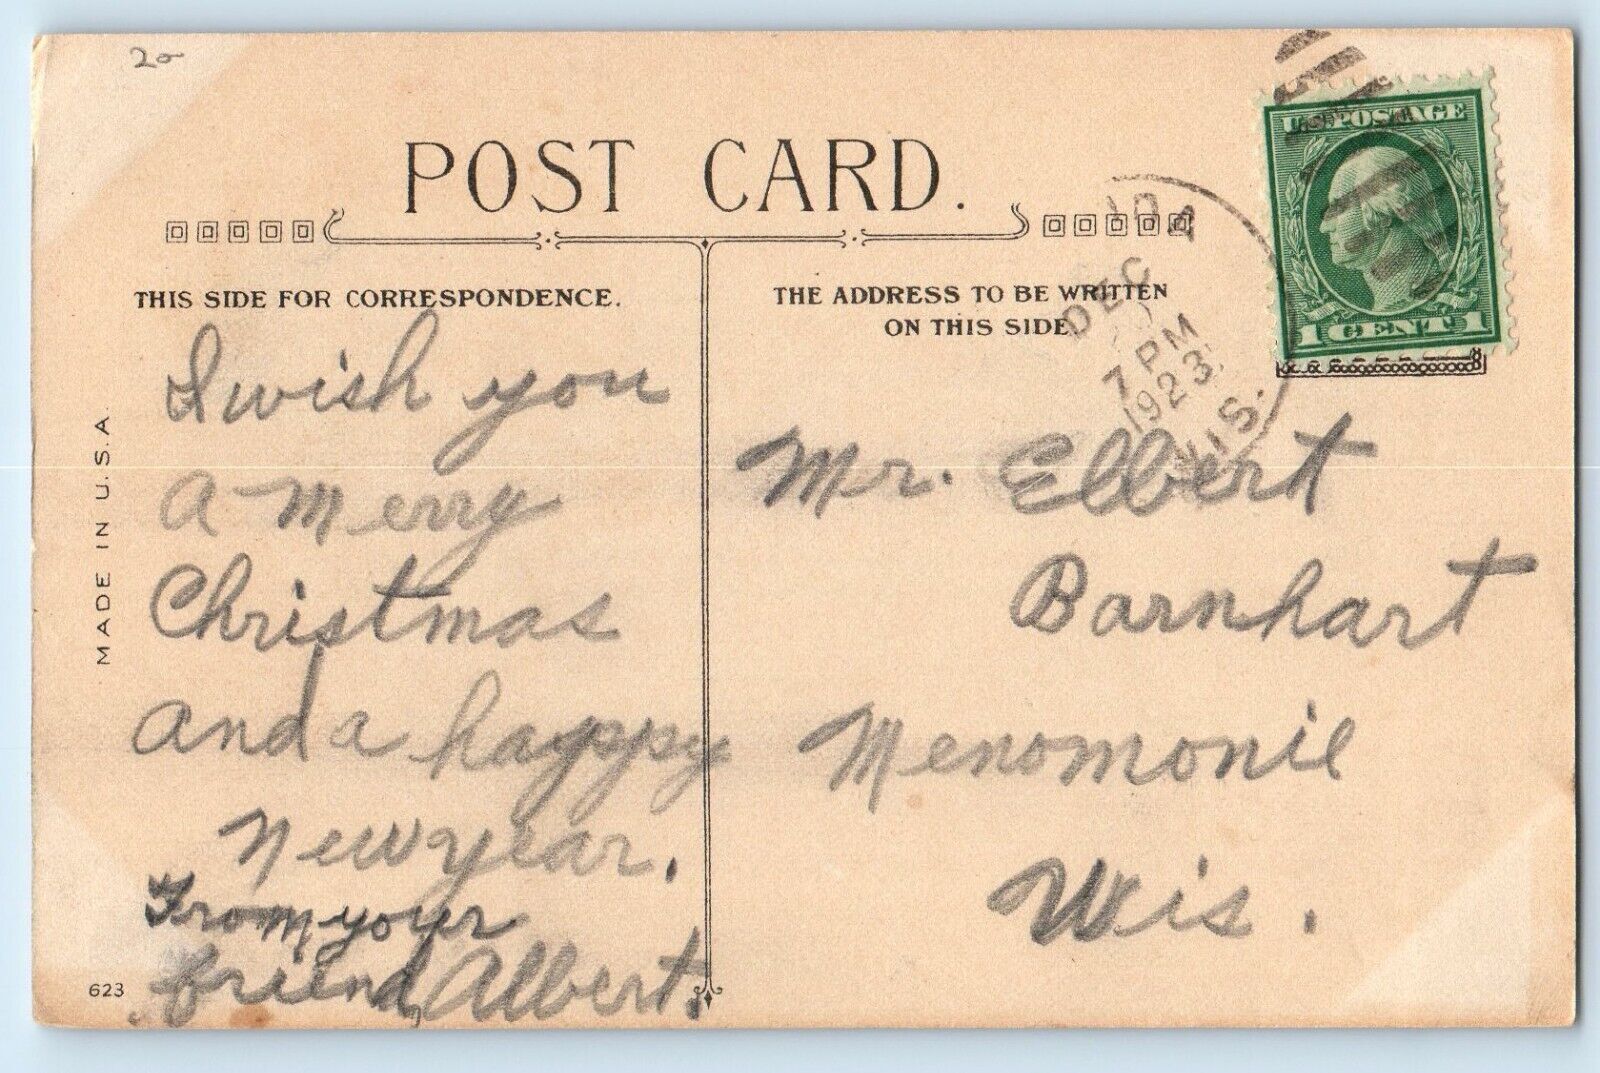 20
POST CARD.
THIS SIDE FOR CORRESPONDENCE.
I wish you
A Merry
Christmas
and a happy
New year.
From your
friend, Albert.
MADE IN U.S.A.
623
THE ADDRESS TO BE WRITTEN
ON THIS SIDE.
U.S. POSTAGE
1 CENT 1
DEC
7 PM
1923
WIS.
Mr. Elbert
Barnhart
Menomonie
Wis.